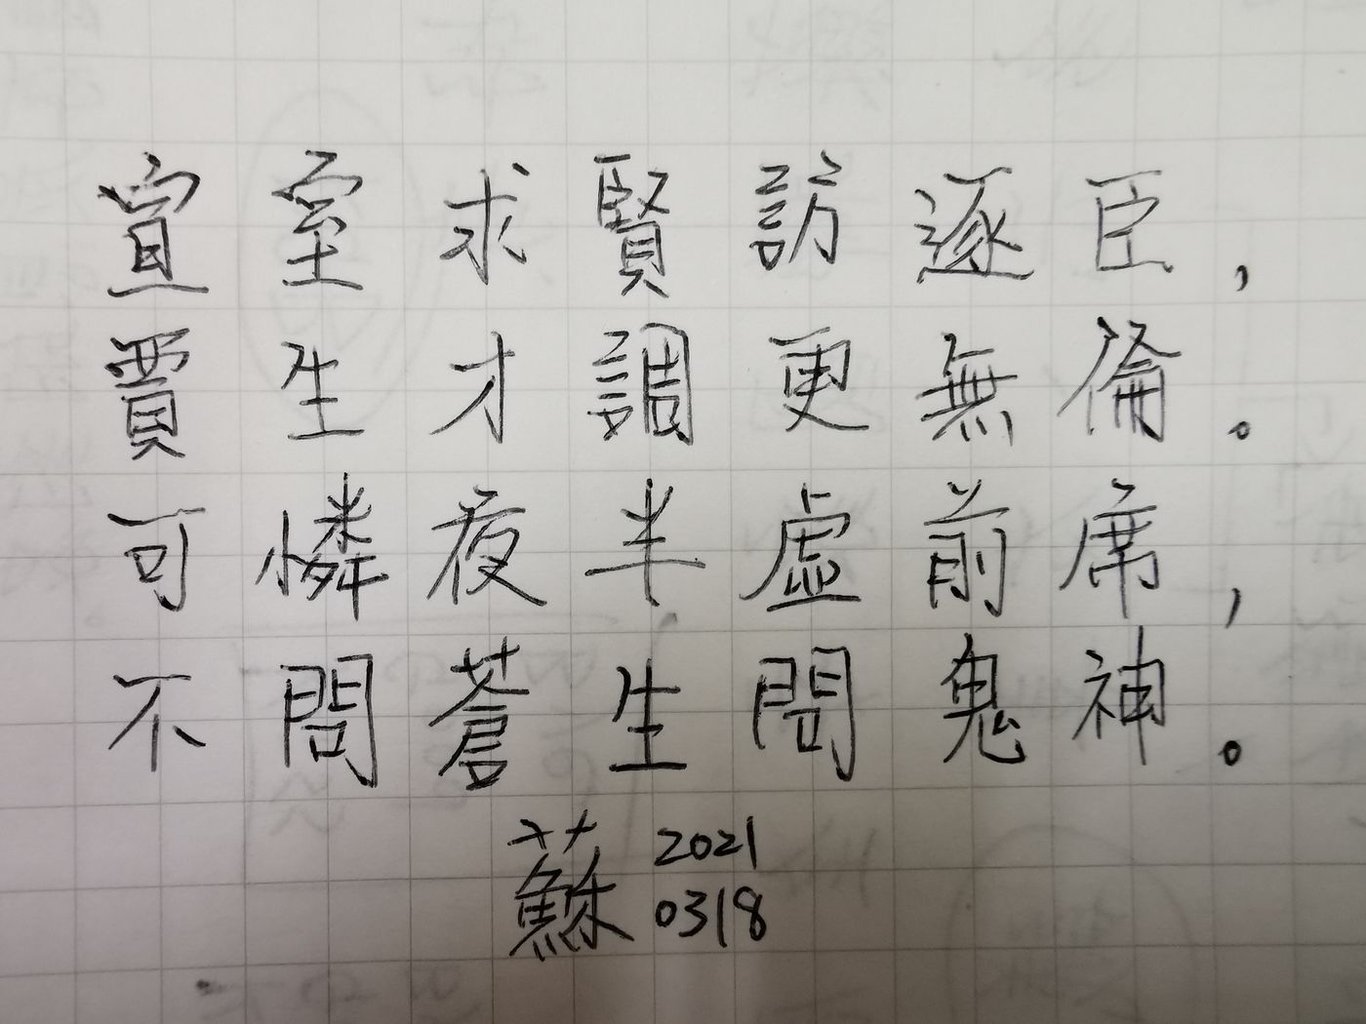 宣室求賢訪逐臣，
賈生才調更無倫。
可憐夜半虛前席，
不問蒼生問鬼神。
蘇 2021
0318